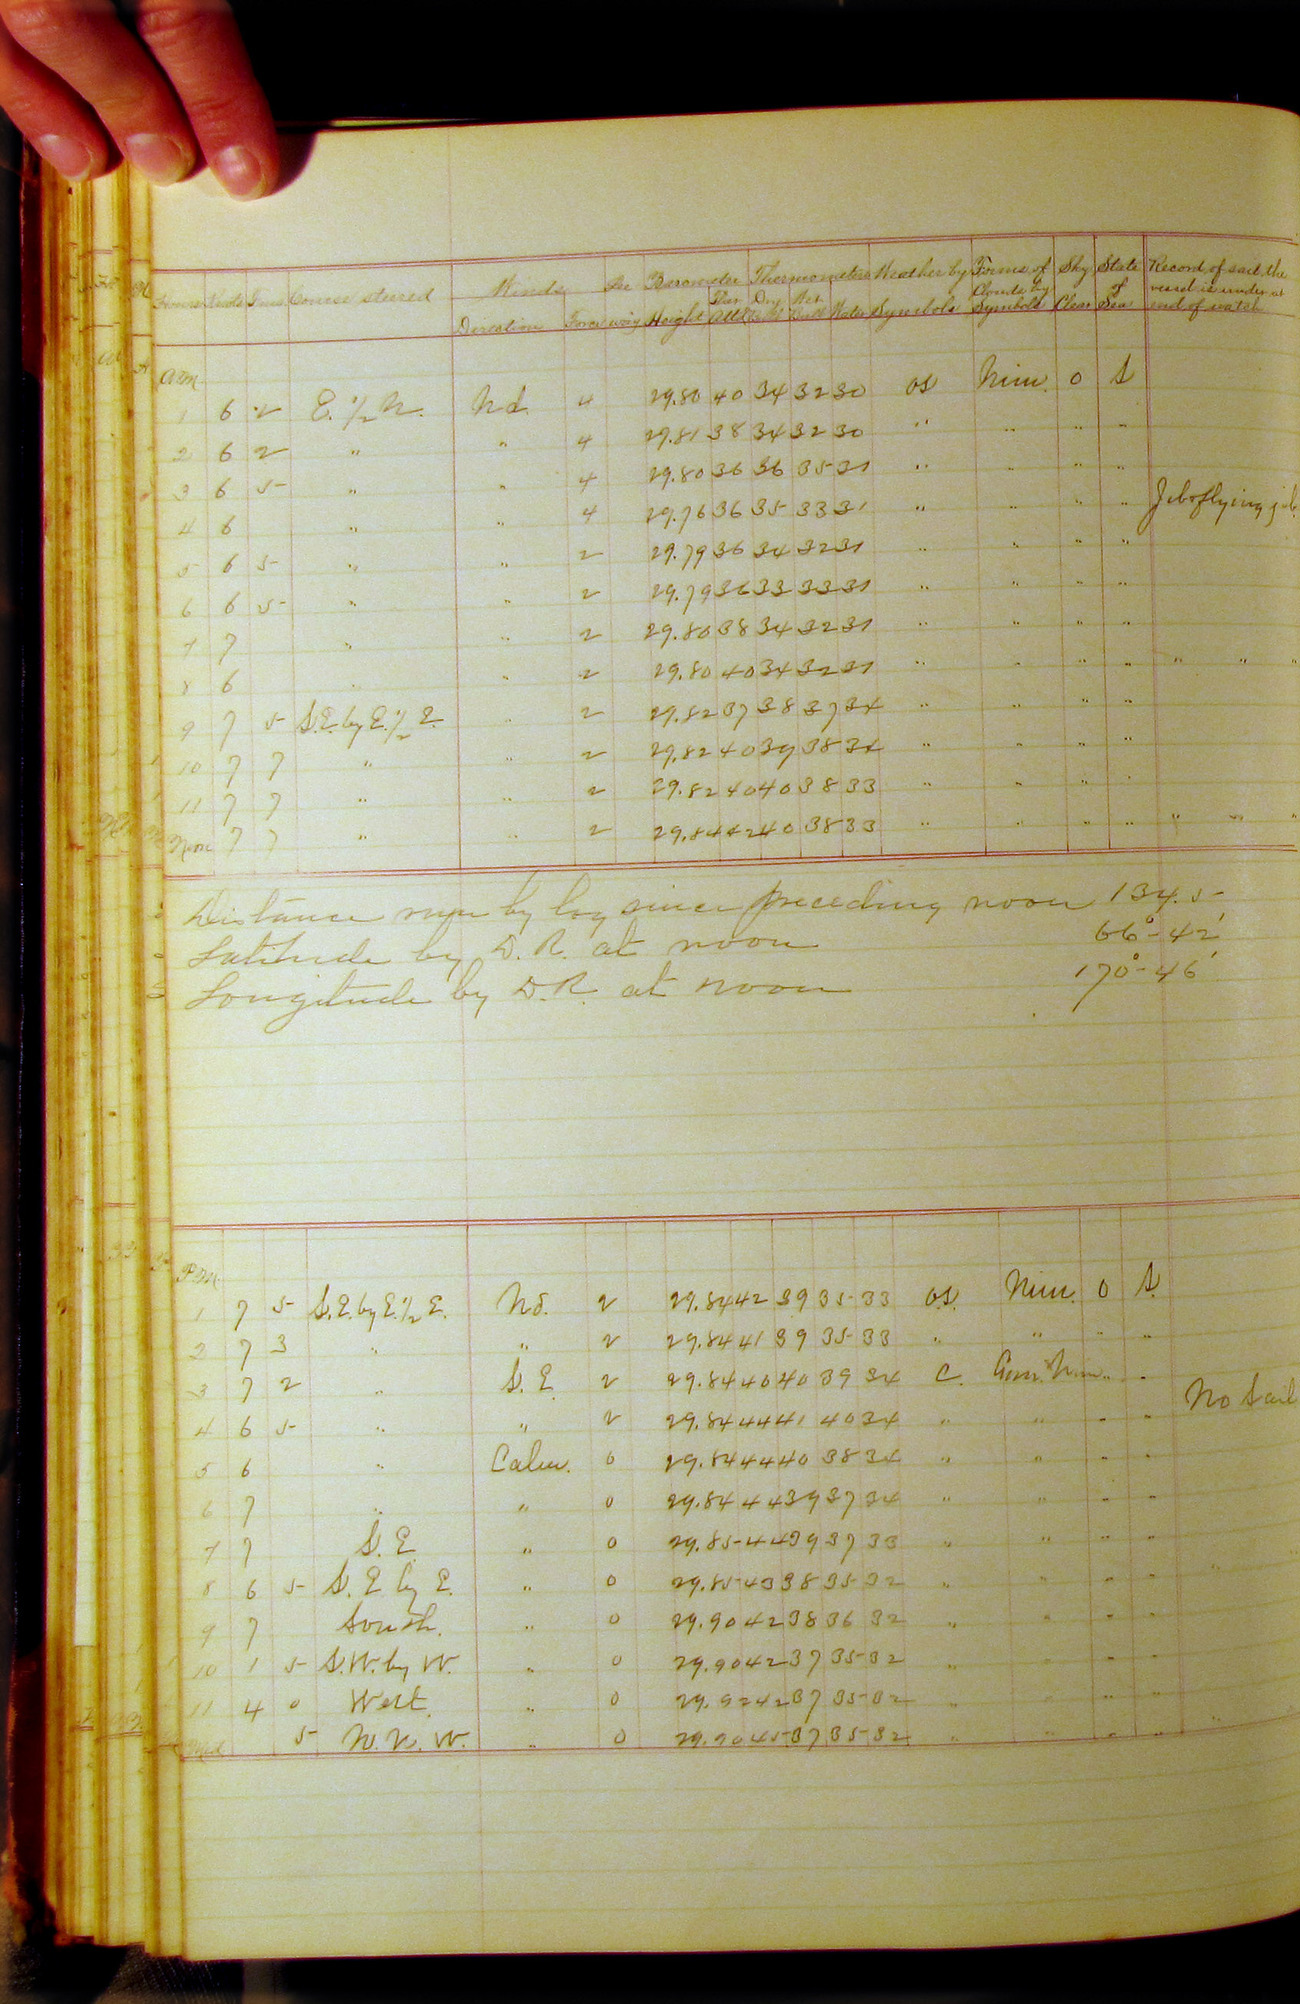 Hours Knots Tenths Course steered Winds Lee Barometer Thermometers Weather by Forms of Sky State Record of sail the
Direction Force way Height Ther. Att'd Dry Bulb Wet Bulb Water Symbols Clouds by Symbols Clear of Sea vessel is under at end of watch
A.M.
1 6 2 E. ½ N. Nd. 4 29.80 40 34 32 30 os Nim. 0 S
2 6 2 " " 4 29.81 38 34 32 30 " " " "
3 6 5 " " 4 29.80 36 36 35 31 " " " "
4 6 " " 4 29.76 36 35 33 31 " " " " Jib & flying jib
5 6 5 " " 2 29.79 36 34 32 31 " " " "
6 6 5 " " 2 29.79 36 33 33 31 " " " "
7 7 " " 2 29.80 38 34 32 31 " " " "
8 6 " " 2 29.80 40 34 32 31 " " " " " " "
9 7 5 S.E. by E. ½ E. " 2 29.82 37 38 37 34 " " " "
10 7 7 " " 2 29.82 40 39 38 34 " " " "
11 7 7 " " 2 29.82 40 40 38 33 " " " "
Noon 7 7 " " 2 29.84 42 40 38 33 " " " " " " "
Distance run by log since preceding noon 134.5
Latitude by D.R. at noon 66°-42'
Longitude by D.R. at noon 170°-46'
P.M.
1 7 5 S.E. by E. ½ E. Nd. 2 29.84 42 39 35 33 o.s. Nim. 0 S.
2 7 3 " " 2 29.84 41 39 35 33 " " " "
3 7 2 " S.E. 2 29.84 40 40 39 34 c. Nim. " "
4 6 5 " " 2 29.84 44 41 40 34 " " " " No Sail
5 6 " Calm. 0 29.84 44 40 38 34 " " " "
6 7 " " 0 29.84 44 39 37 34 " " " "
7 7 S.E. " 0 29.85 44 39 37 33 " " " "
8 6 5 S.E. by E. " 0 29.85 43 38 35 32 " " " " "
9 7 South. " 0 29.90 42 38 36 32 " " " "
10 1 5 S.W. by W. " 0 29.90 42 37 35 32 " " " "
11 4 0 West. " 0 29.92 42 37 35 32 " " " "
Mid 5 N.N.W. " 0 29.90 45 37 35 32 " " " " "